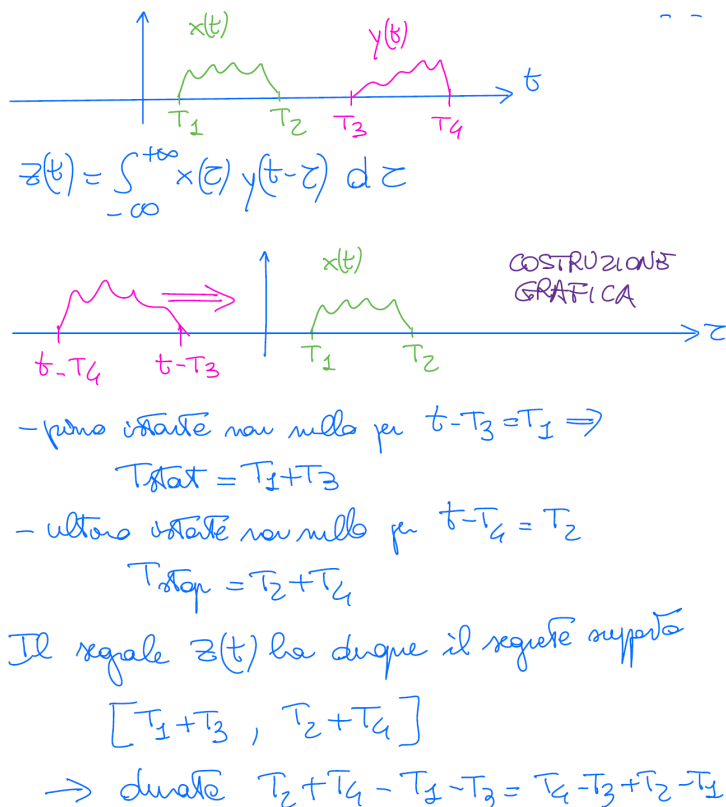 x(t) y(t)
t
T1 T2 T3 T4
z(t) = ∫_{-∞}^{+∞} x(τ) y(t-τ) dτ
x(t) COSTRUZIONE
GRAFICA
τ
t-T4 t-T3 T1 T2
- primo istante non nullo per t-T3 = T1 ⇒
Tstart = T1+T3
- ultimo istante non nullo per t-T4 = T2
Tstop = T2+T4
Il segnale z(t) ha dunque il seguente supporto
[T1+T3 , T2+T4]
→ durata T2+T4 - T1 - T3 = T4-T3+T2-T1